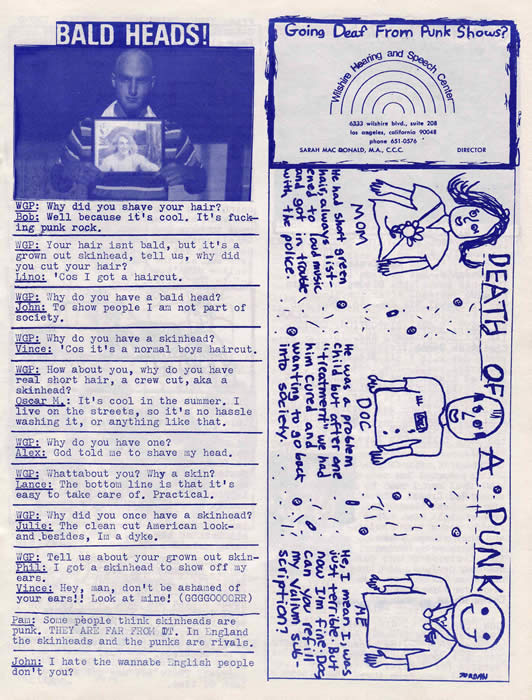 BALD HEADS!
WGP: Why did you shave your hair?
Bob: Well because it's cool. It's fuck-
ing punk rock.
WGP: Your hair isnt bald, but it's a
grown out skinhead, tell us, why did
you cut your hair?
Lino: 'Cos I got a haircut.
WGP: Why do you have a bald head?
John: To show people I am not part of
society.
WGP: Why do you have a skinhead?
Vince: 'Cos it's a normal boys haircut.
WGP: How about you, why do you have
real short hair, a crew cut, aka a
skinhead?
Oscar M.: It's cool in the summer. I
live on the streets, so it's no hassle
washing it, or anything like that.
WGP: Why do you have one?
Alex: God told me to shave my head.
WGP: Whattabout you? Why a skin?
Lance: The bottom line is that it's
easy to take care of. Practical.
WGP: Why did you once have a skinhead?
Julie: The clean cut American look-
and besides, Im a dyke.
WGP: Tell us about your grown out skin-
Phil: I got a skinhead to show off my
ears.
Vince: Hey, man, don't be ashamed of
your ears!! Look at mine! (GGGGOOOORR)
Pam: Some people think skinheads are
punk. THEY ARE FAR FROM IT. In England
the skinheads and the punks are rivals.
John: I hate the wannabe English people
don't you?
Going Deaf From Punk Shows?
Wilshire Hearing and Speech Center
6333 wilshire blvd., suite 208
los angeles, california 90048
phone 651-0576
SARAH MAC DONALD, M.A., C.C.C. DIRECTOR
DEATH OF A PUNK
MOM
He had short green
hair, always list-
ened to loud music
and got in trouble
with the police.
DOC
He was a problem
child but after one
"treatment" we had
him cured and
wanting to go back
into society.
ME
He, I mean I, was
just terrible. But
now I'm fine. Doc,
can you refill
my Valium sub-
scription?